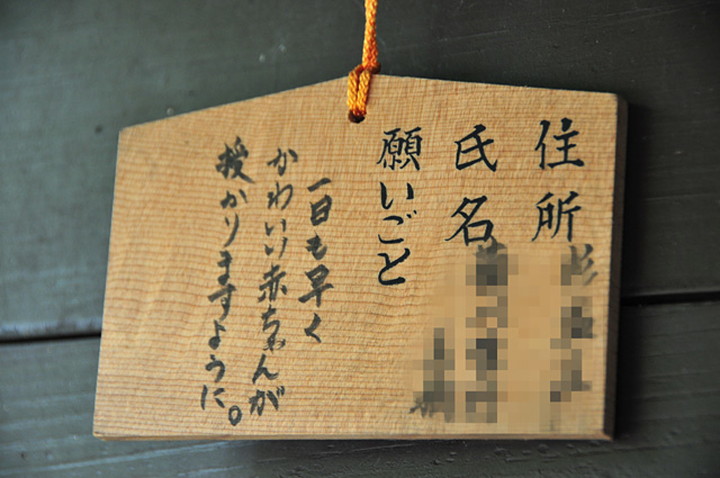 住所
氏名
願いごと
一日も早く
かわいい赤ちゃんが
授かりますように。